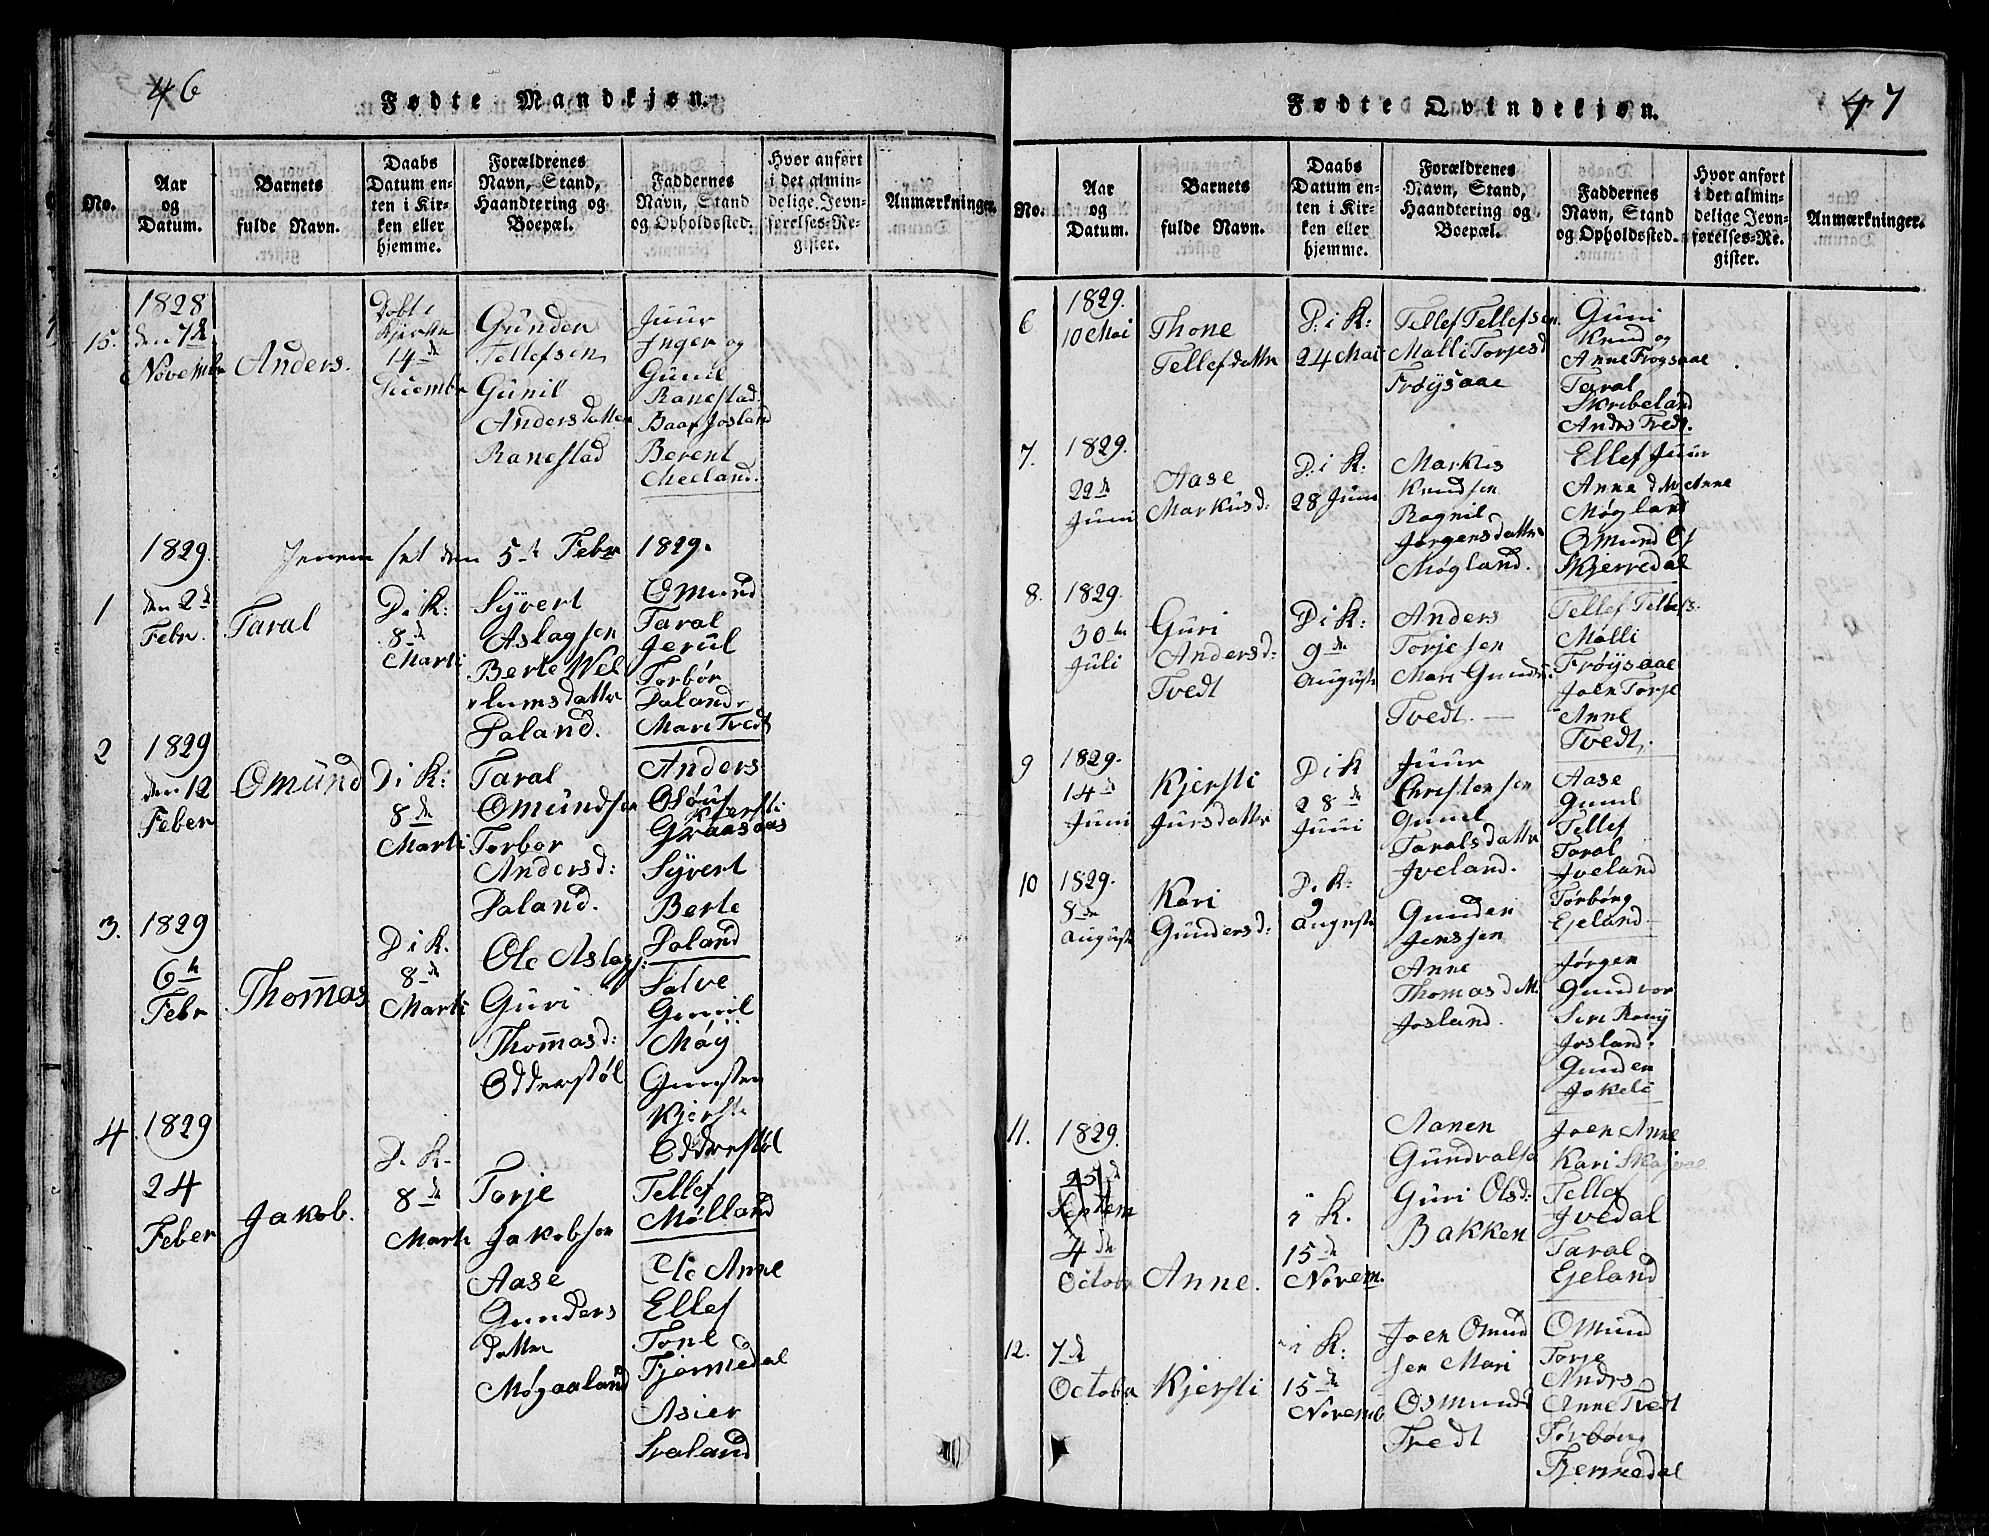 46
Fødte Mandkjøn.
No.
Aar
og
Datum.
Barnets
fulde Navn.
Daabs
Datum en-
ten i Kir-
ken eller
hjemme.
Forældrenes
Navn, Stand,
Haandtering og
Boepæl.
Faddernes
Navn, Stand
og Opholdssted.
Hvor anført
i det almin-
delige Jevn-
førelses-Re-
gister.
Anmærkninger.
15.
1828
den 7de
Novembr
Anders.
Døbt i
Kjerken
14de
Decembr
Gunden
Tellefsen
Gunil
Andersdatter
Ranestad
Juur
Inger og
Gunil
Ranestad.
Baar Josland
Berent
Meeland.
1829.
set den 5te Febr 1829.
1
den 2d
Febr.
Taral
D i K:
8de
Marti
Syvert
Aslagsen
Berte Wel
lumsdattr
Daland.
Omund
Taral
Jerul
Torbor
Daland
Mari Tvedt
2
1829
den 12
Feber
Omund
D i K:
8de
Marti
Taral
Omundsen
Torbor
Andersd:
Daland.
Anders
Oloug
Kjersti
Graasaas
Syvert
Berte
Daland
3.
1829
6te
Febr
Thomas
D i K.
8de
Marti
Ole Aslags:
Guri
Thomasd:
Odderstøl
Salve
Gunil
Møÿ
Gunsten
Kjersti
Odderstøl
4
1829
24
Feber
Jakob.
D. K.
8de
Marti
Torje
Jakobsen
Aase
Gunders
datter
Møgaaland
Tellef
Mølland
Ole Anne
Ellef
Tone
Fjermedal
Asier
Svaland
47
Fødte Qvindekjøn.
No.
Aar
og
Datum.
Barnets
fulde Navn.
Daabs
Datum en-
ten i Kir-
ken eller
hjemme.
Forældrenes
Navn, Stand,
Haandtering og
Boepæl.
Faddernes
Navn, Stand
og Opholdssted.
Hvor anført
i det almin-
delige Jevn-
førelses-Re-
gister.
Anmærkninger.
6
1829.
10 Mai
Thone
Tellefdattr
D: i K:
24 Mai
Tellef Tellefsen
Malli Torjesd
Frøÿsaae
Guni
Knud og
Anne Frøysaae
Taral
Skribeland
Andrs Tvedt.
7.
1829.
22de
Juni
Aase
Markusd:
D: i K:
28 Juni
Markus
Knudsen
Ragnil
Jørgensdattr
Møgland.
Ellef Juur
Anne d M Anne
Møgland
Omund Ej
Skjerredal
8.
1829.
30te
Juli
Guri
Andersd:
Tvedt
D i K:
9de
Auguste
Anders
Torjesen
Mari Gunds
Tvedt.
Tellef Tellefs.
Mølli
Frøÿsaae
Joen Torje
Anne
Tvedt.
9
1829.
14de
Juni
Kjersti
Jursdattr
D i K
28de
Juni
Juur
Christensen
Gunil
Taralsdattr
Iveland.
Aase
Gunil
Tellef
Taral
Iveland
Torborg
Ejeland
10
1829.
8de
Auguste
Kari
Gundersd:
D. K:
9
Auguste
Gunder
Jenssen
Anne
Thomasd M.
Josland.
Jørgen
Gundvor
Siri Ranÿ
Josland.
Gunden
Jokeli
11.
1829.
25de
Septem
4de
Octobr
Anne.
i K.
15de
Novem.
Aanen
Gundvalsen
Guri Olsd:
Bakken
Joen Anne
Kari
Tellef
Ivedal
Taral
Ejeland
12.
7de
Octobr
Kjersti
i K:
15de
Novemb
Joen Omund
sen Mari
Osmundd
Tvedt
Omund
Torje
Andrs
Anne Tvedt
Torborg
Fjermedal